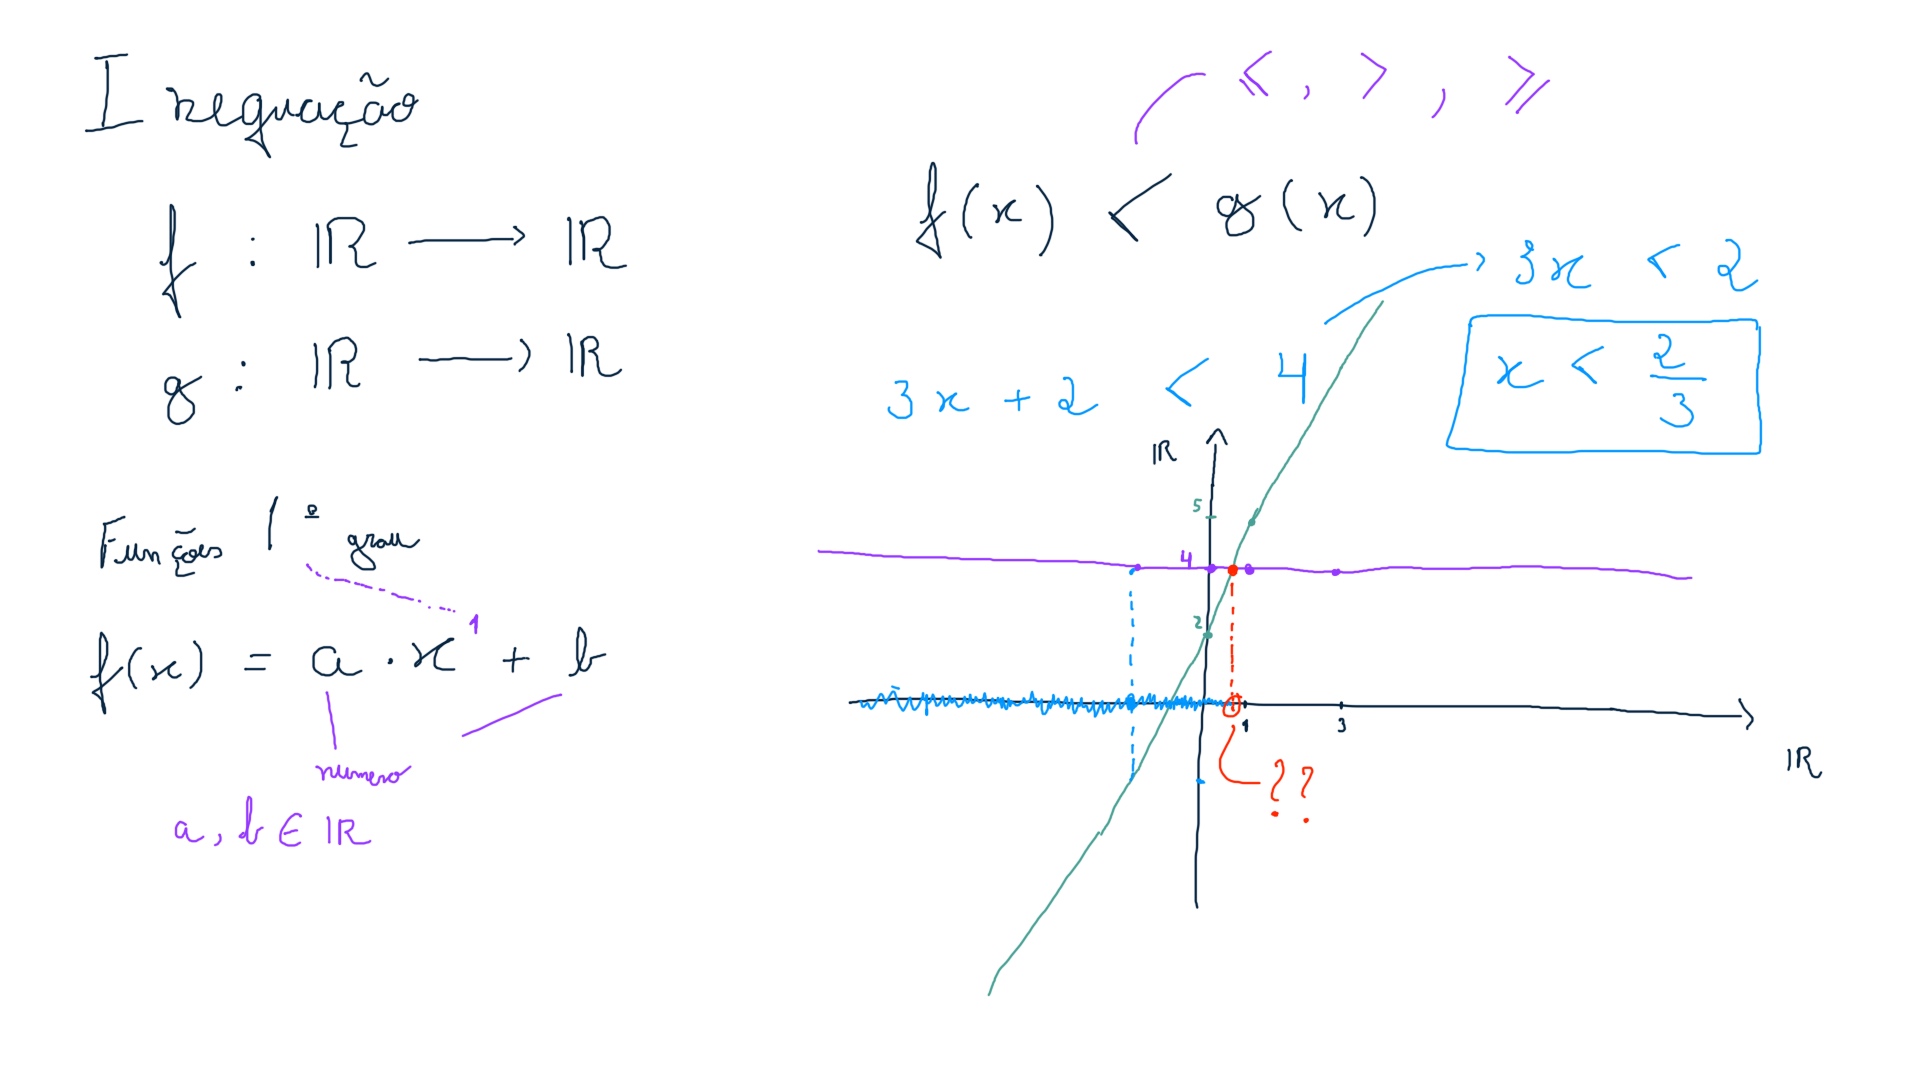 Inequação
f : ℝ ⟶ ℝ
g : ℝ ⟶ ℝ
Funções 1º grau
f(x) = a · x¹ + b
numero
a, b ∈ ℝ
⩽ , > , ⩾
f(x) < g(x)
3x + 2 < 4
3x < 2
x < 2/3
ℝ
5
4
2
1
3
ℝ
??